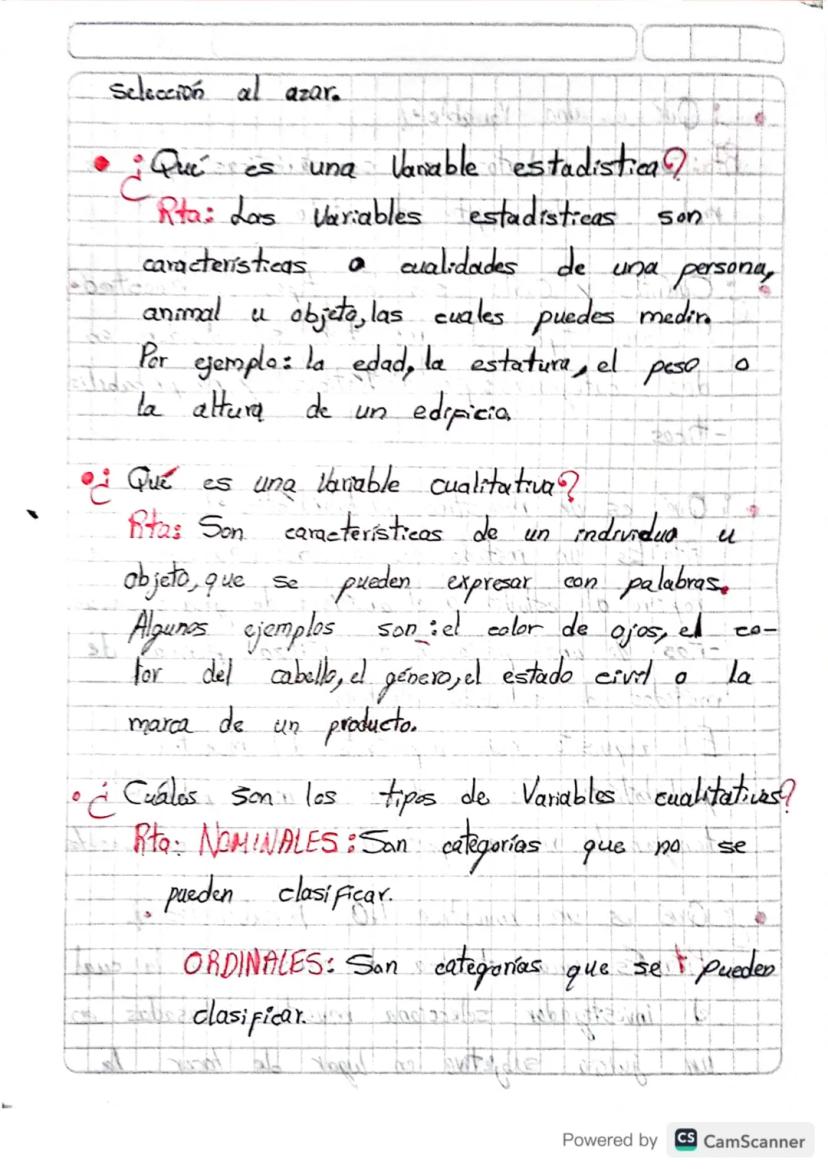 Selección al azar.
• ¿Qué es una Variable estadística?
Rta: Las Variables estadísticas son
características o cualidades de una persona,
animal u objeto, las cuales puedes medir.
Por ejemplo: la edad, la estatura, el peso o
la altura de un edificio.
• ¿Qué es una Variable cualitativa?
Rta: Son características de un individuo u
objeto, que se pueden expresar con palabras.
Algunos ejemplos son: el color de ojos, el co-
lor del cabello, el género, el estado civil o la
marca de un producto.
• ¿Cuáles son los tipos de Variables cualitativas?
Rta: NOMINALES: Son categorías que no se
pueden clasificar.
ORDINALES: Son categorías que se pueden
clasificar.
Powered by CS CamScanner